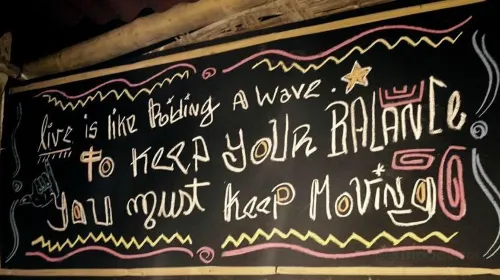 live is like Riding A wave.
to KEEP YOUR BALANCE
You must keep MOVING